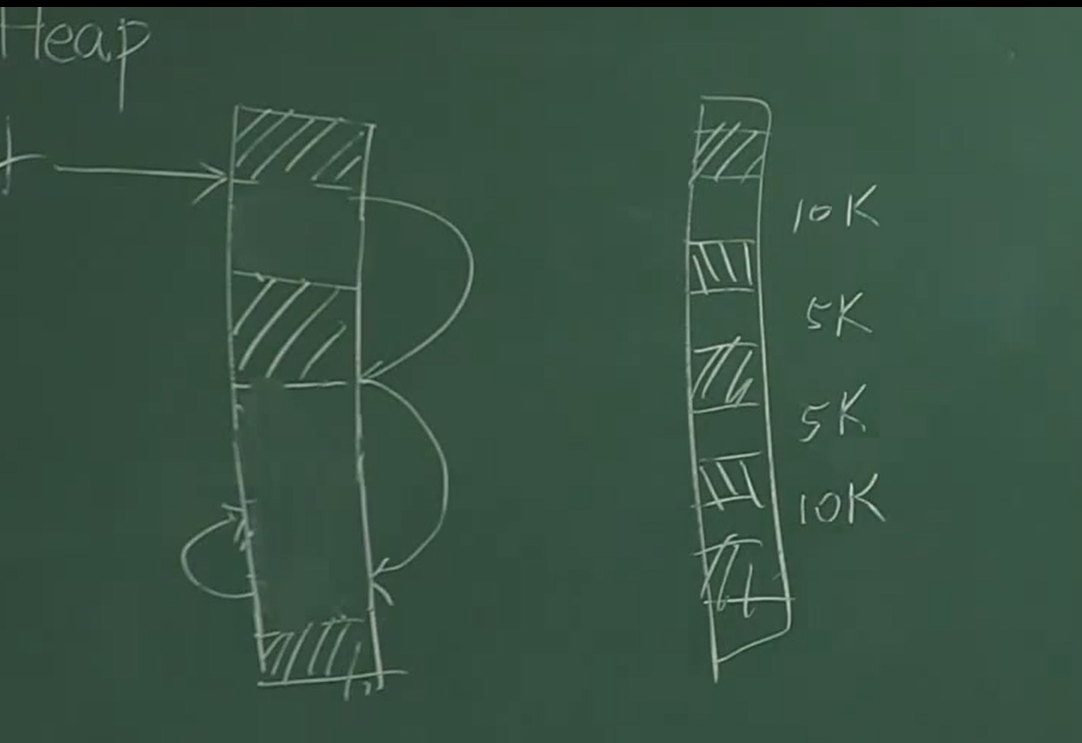 Heap
10K
5K
5K
10K